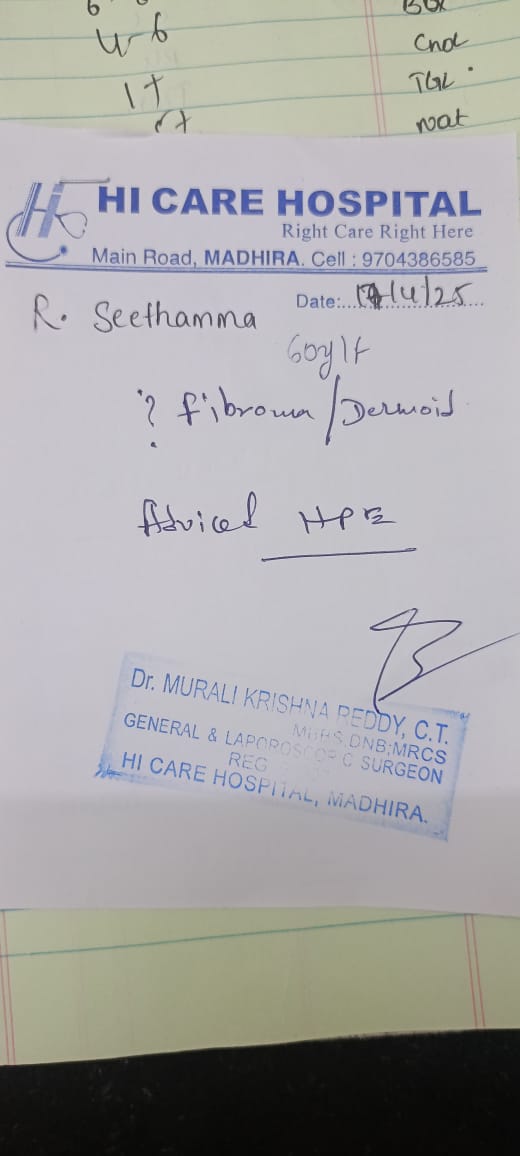 6
BUL
Cnol
TGL
1+
noat
HI CARE HOSPITAL
Right Care Right Here
Main Road, MADHIRA. Cell : 9704386585
Date:.../4/25
R. Seethamma
60y/f
? fibroma/Dermoid
Adviced HPE
Dr. MURALI KRISHNA REDDY, C.T.
MBBS,DNB;MRCS
GENERAL & LAPOROSCOPIC SURGEON
REG
HI CARE HOSPITAL, MADHIRA.